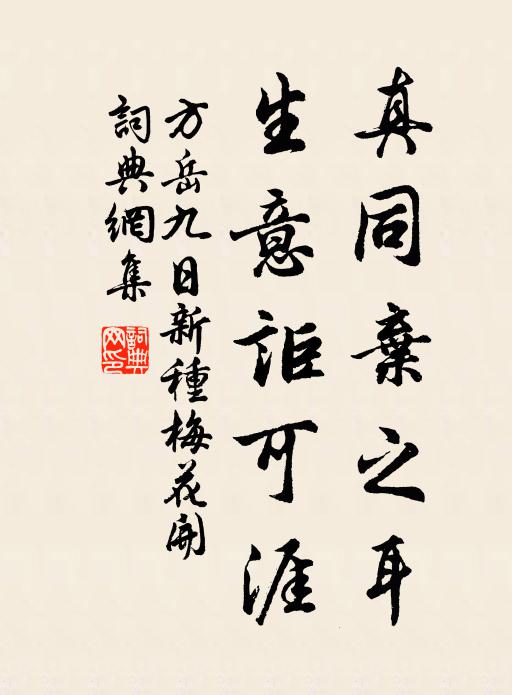 真同棄之耳
生意詎可涯
方岳九日新種梅花開
詞典網集
詞典網印